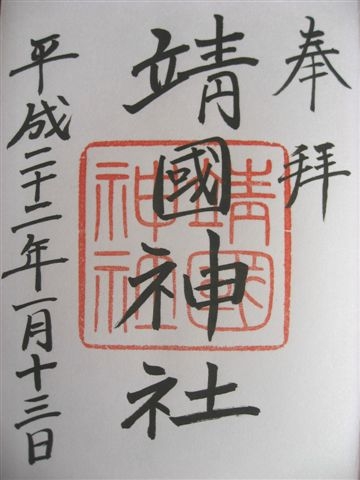 奉拜
靖國神社
靖國神社
平成二十二年一月十三日